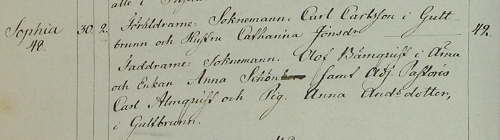 Sophia 30. 2. Föräldrarne: Soknemann. Carl Carlsson i Gult- 49.
48. brunn och Hustru Catharina Jonsdr
Faddrarne: Soknemann. Olof Bärnqvist i
och Enkan Anna samt Adj. Pastoris
Carl Almqvist och Pig. Anna Andsdotter,
i Gultbrunn.